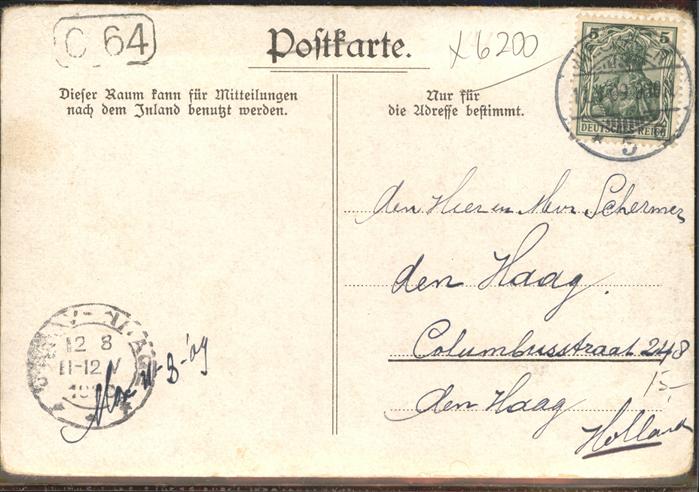 C 64
Postkarte.
x6200
Dieser Raum kann für Mitteilungen
nach dem Inland benutzt werden.
Nur für
die Adresse bestimmt.
5 5
DEUTSCHES REICH
5
den Heer en Mevr. Schermer
den Haag.
Columbusstraat 248
15,-
den Haag
Holland
12 8
11-12 V
-8-'09